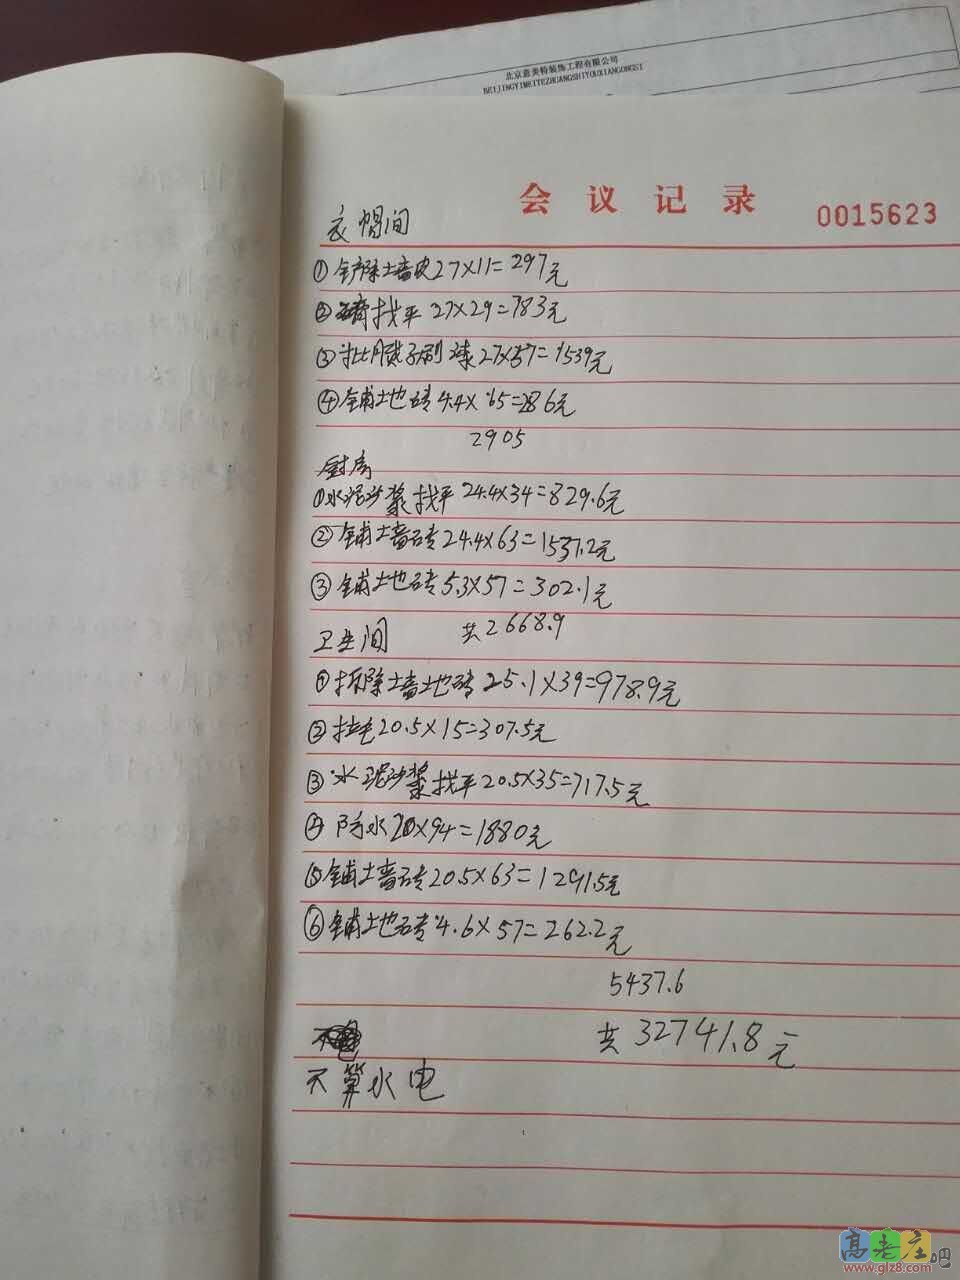 北京意美特装饰工程有限公司
BEIJINGYIMEITEZHUANGSHIYOUXIANGONGSI
会议记录
0015623
衣帽间
①铲除墙皮27×11=297元
②墙找平 27×29=783元
③批腻子刷漆27×57=1539元
④铺地砖4.4×65=286元
2905
厨房
①水泥沙浆找平 24.4×34=829.6元
②铺墙砖24.4×63=1537.2元
③铺地砖5.3×57=302.1元
共2668.9
卫生间
①拆除墙地砖 25.1×39=978.9元
②拉毛20.5×15=307.5元
③水泥沙浆找平20.5×35=717.5元
④防水20×94=1880元
⑤铺墙砖20.5×63=1291.5元
⑥铺地砖4.6×57=262.2元
5437.6
共32741.8元
不算水电
高老庄吧
www.glz8.com